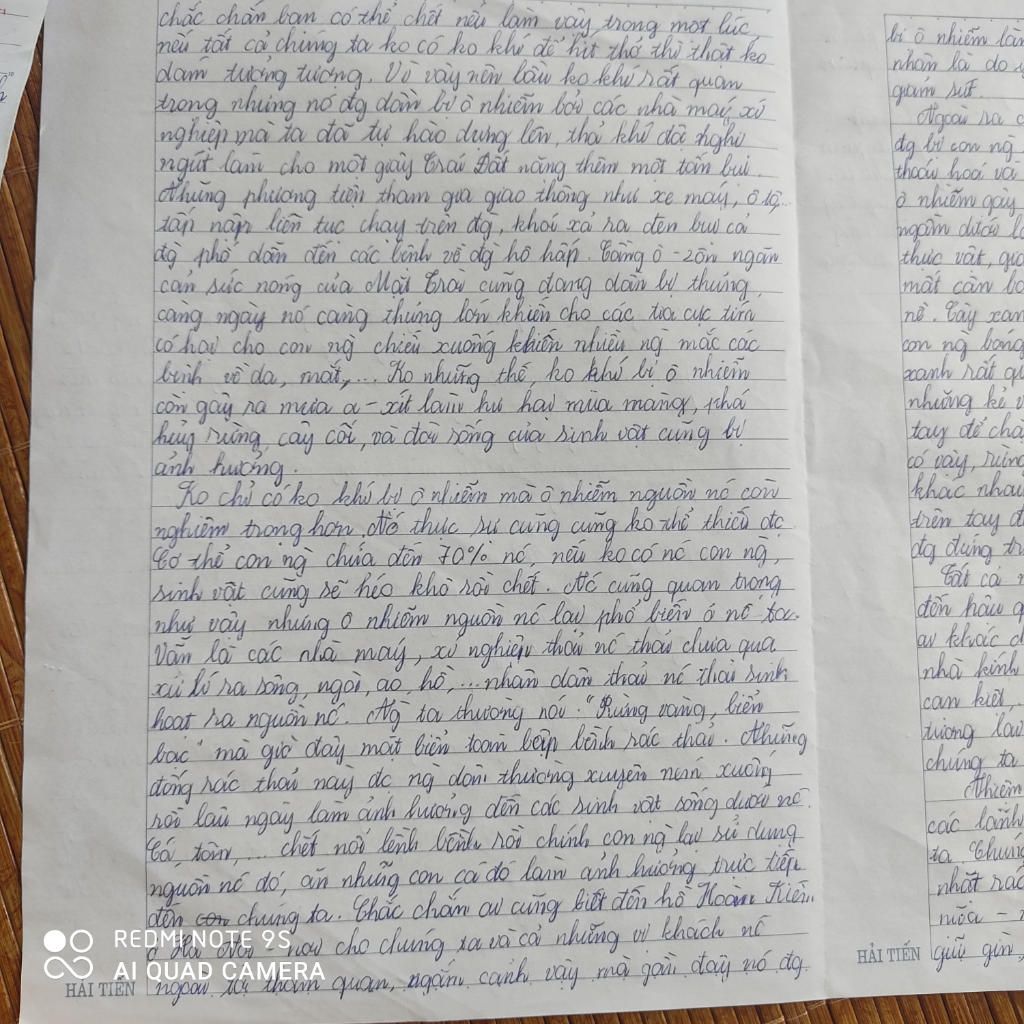 chắc chắn bạn có thể chết nếu làm vậy, trong một lúc
nếu tất cả chúng ta ko có ko khí để hít thở thì thật ko
dám tưởng tượng. Vì vậy nên bầu ko khí rất quan
trọng nhưng nó đg dần bị ô nhiễm bởi các nhà máy, xí
nghiệp mà ta đã tự hào dựng lên, thải khí độc nghi
ngút làm cho một giây Trái Đất nặng thêm một tấn bụi.
Những phương tiện tham gia giao thông như xe máy, ô tô,...
tấp nập liên tục chạy trên đg, khói xả ra đen bụi cả
đg phố dẫn đến các bệnh về đg hô hấp. Tầng ô-zôn ngăn
cản sức nóng của Mặt Trời cũng đang dần bị thủng,
càng ngày nó càng thủng lớn khiến cho các tia cực tím
có hại cho con ng chiếu xuống khiến nhiều ng mắc các
bệnh về da, mắt,... Ko những thế, ko khí bị ô nhiễm
còn gây ra mưa a-xít làm hư hại mùa màng, phá
hủy rừng, cây cối, và đời sống của sinh vật cũng bị
ảnh hưởng.
Ko chỉ có ko khí bị ô nhiễm mà ô nhiễm nguồn nc còn
nghiêm trọng hơn. Nc thực sự cũng cũng ko thể thiếu đc
Cơ thể con ng chứa đến 70% nc, nếu ko có nc con ng,
sinh vật cũng sẽ héo khô rồi chết. Nc cũng quan trọng
như vậy nhưng ô nhiễm nguồn nc lại phổ biến ở nc ta.
Vẫn là các nhà máy, xí nghiệp thải nc thải chưa qua
xử lí ra sông, ngòi, ao, hồ,... nhân dân thải nc thải sinh
hoạt ra nguồn nc. Ng ta thường nói: "Rừng vàng, biển
bạc" mà giờ đây mặt biển toàn bập bềnh rác thải. Những
đống rác thải này dc ng dân thường xuyên ném xuống
rồi lâu ngày làm ảnh hưởng đến các sinh vật sống dưới nc.
Cá, tôm,... chết nổi lềnh bềnh rồi chính con ng lại sử dụng
nguồn nc đó, ăn những con cá đó làm ảnh hưởng trực tiếp
đến chúng ta. Chắc chắn ai cũng biết đến hồ Hoàn Kiếm
ở Hà Nội cho chúng ta và cả những vị khách nc
ngoài tới thăm quan, ngắm cảnh vậy mà gần đây nó đg
HẢI TIẾN
bị ô nhiễm
nhân là do
giảm sút.
Ngoài ra
đg bị con ng
thoái hoá và
ô nhiễm gây
ngầm dưới
thực vật,
mất cân
nề. Cây xanh
con ng bóng
xanh rất
những kẻ
tay để
có vậy, rừng
khác nhau
trên tay
đg đứng
Tất cả
đến hậu
ai khác
nhà kính
cạn kiệt,
tương lai
chúng ta
các
ta. Chúng
nhặt rác
giữ gìn,
HẢI TIẾN
REDMI NOTE 9S
AI QUAD CAMERA